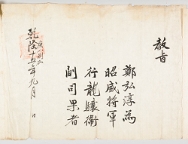 教旨
鄭弘淳為
昭威将軍
行龍驤衛
副司果者
乾隆十五年九月 日